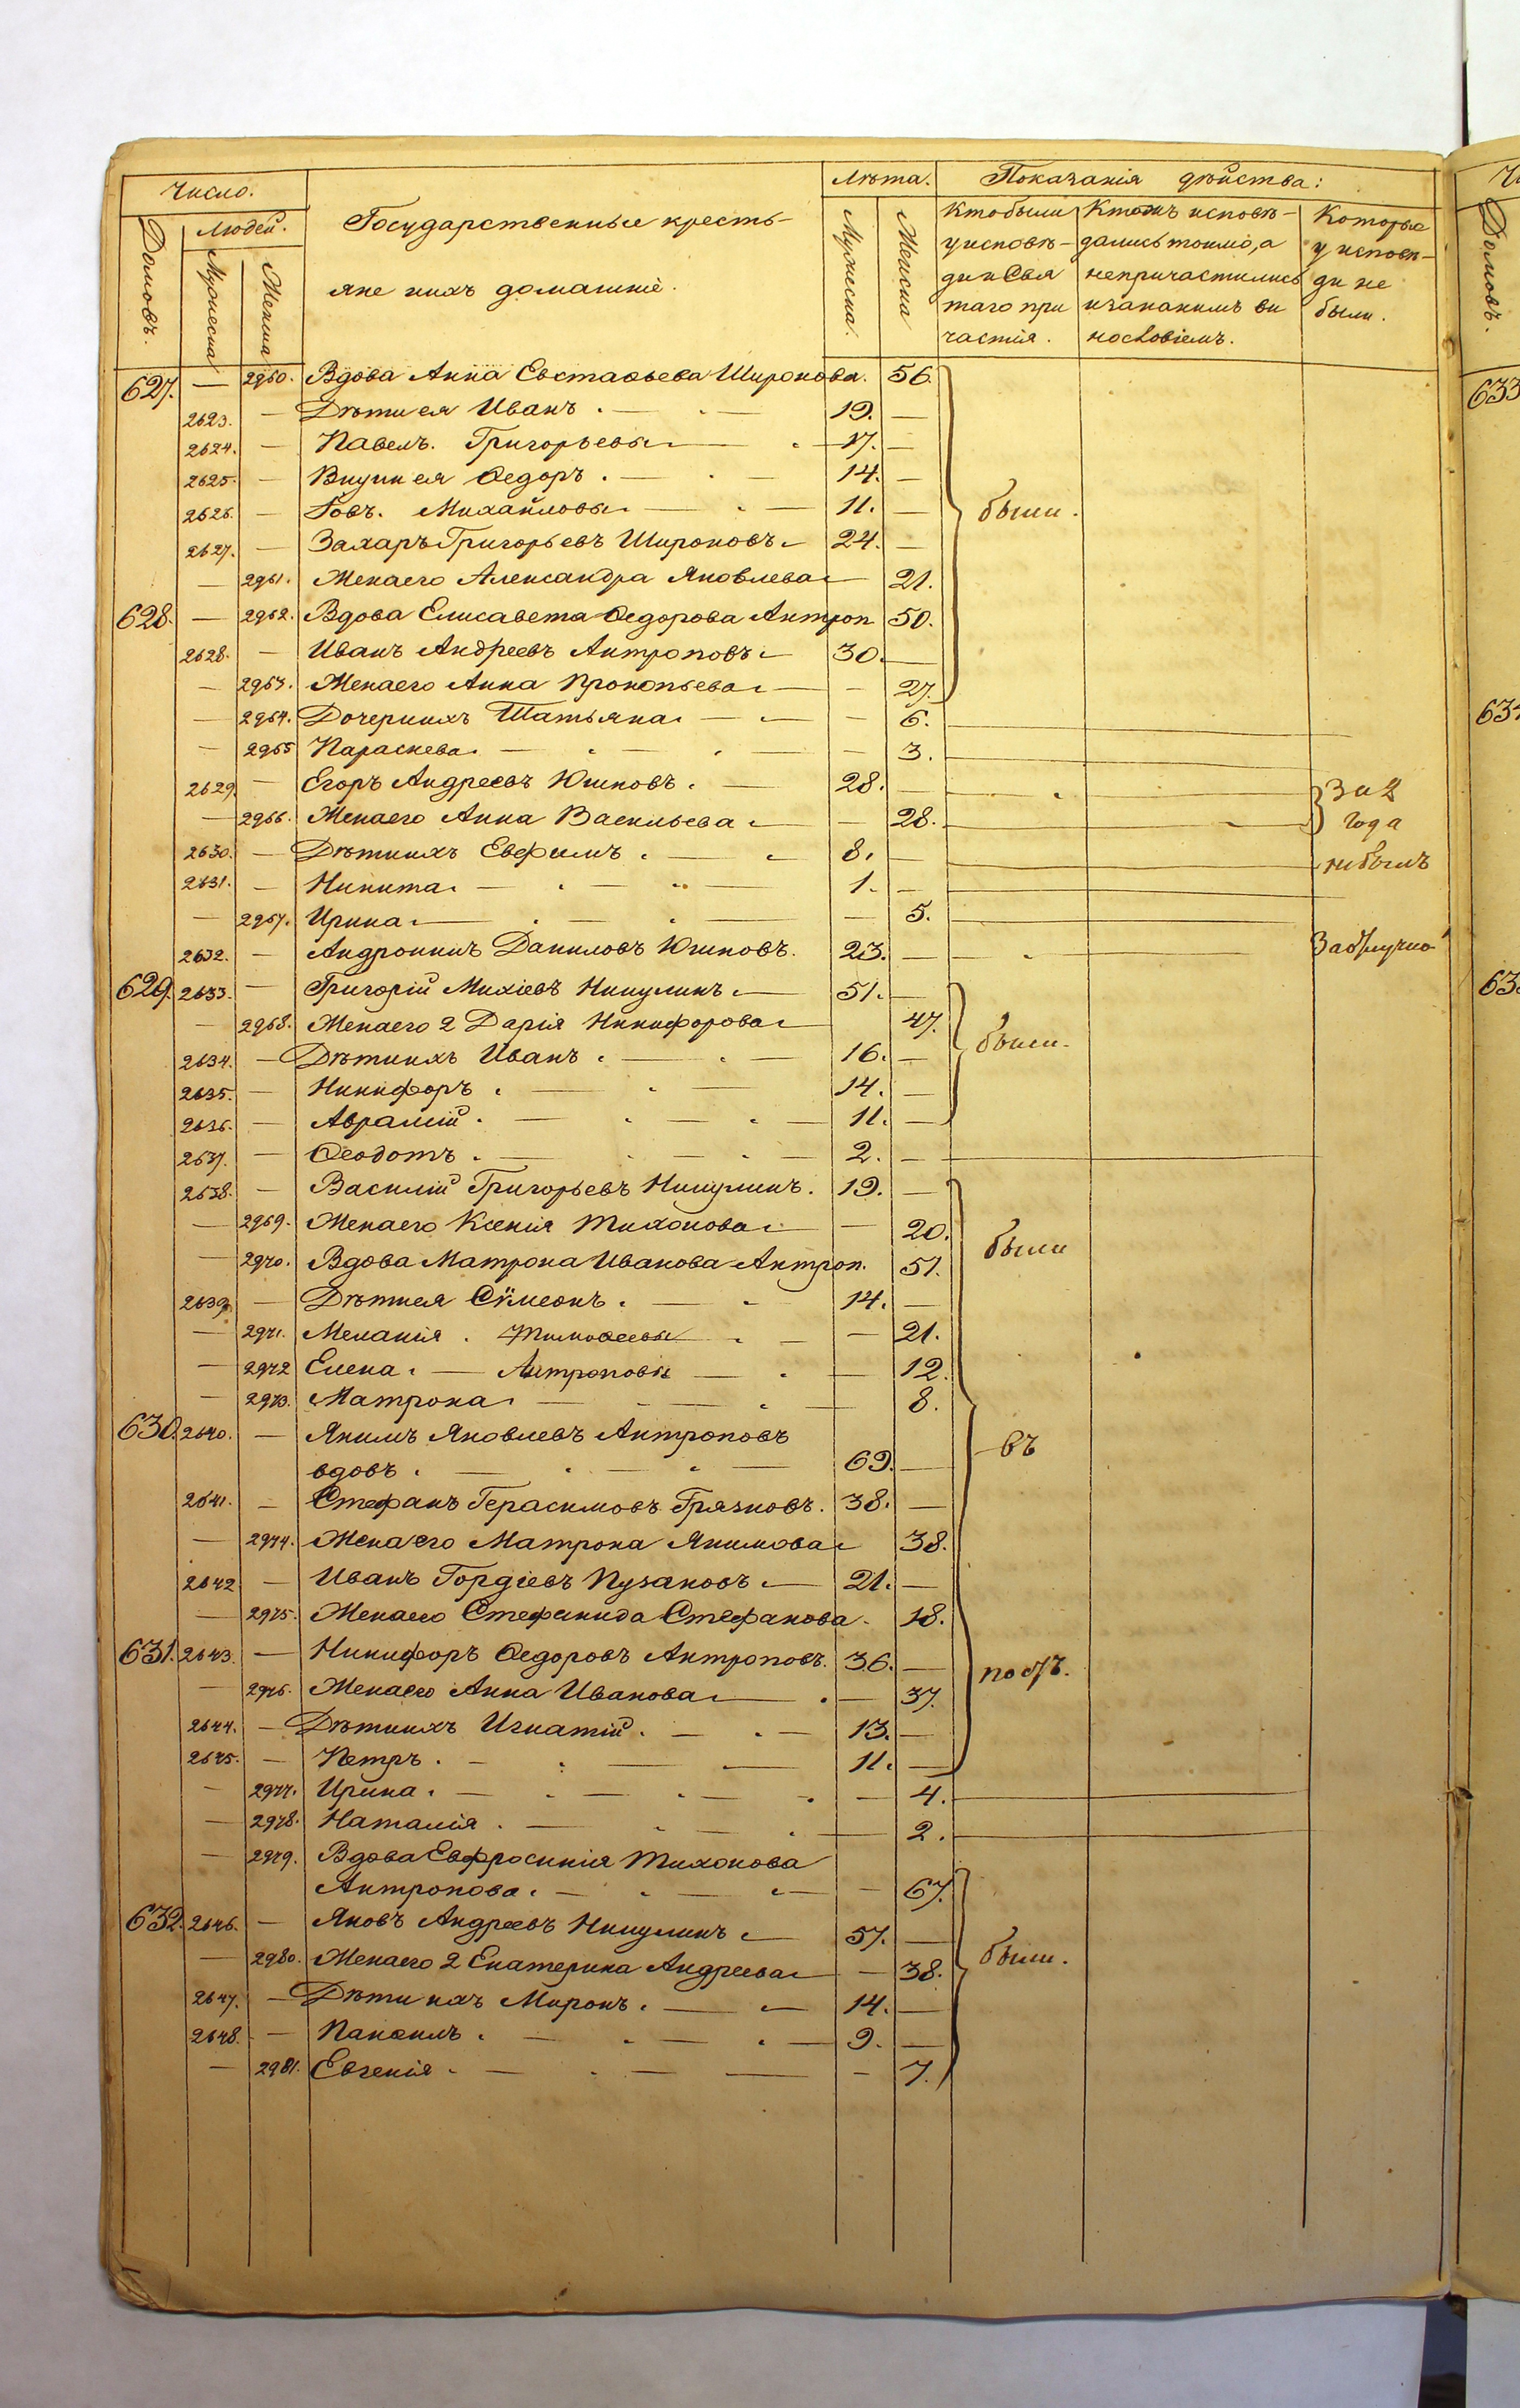 Число. Лѣта. Показанія дѣйства:
Домовъ. Людей. Мужеска Женска
Государственные кресть-
яне ихъ домашніе.
Мужеска. Женска
Кто были у исповѣ- ди и Свя таго при частія.
Ктожъ исповѣ- дались токмо, а непричастились и закакимъ ви нословіемъ.
Которые у исповѣ- ди не были.
627. — 2960. Вдова Анна Евстафьева Широкова. 56.
2623. — Дѣти ея Иванъ. 19. —
2624. — Павелъ. Григорьевы 17. —
2625. — Внуки ея Ѳедоръ. 14. —
2626. — Іовъ. Михайловы 11. — были.
2627. — Захаръ Григорьевъ Широковъ 24. —
— 2961. Жена его Александра Яковлева 21.
628. — 2962. Вдова Елисавета Ѳедорова Антроп 50.
2628. — Иванъ Андреевъ Антроповъ 30. —
— 2963. Жена его Анна Прокопьева — 27.
— 2964. Дочери ихъ Татьяна — 6.
— 2965 Параскева — 3.
2629. — Егоръ Андреевъ Юшковъ. 28. — За 2
— 2966. Жена его Анна Васильева — 28. года
2630. — Дѣти ихъ Евфимъ. 8. — небылъ
2631. — Никита 1. —
— 2967. Ирина — 5.
2632. — Андроникъ Даниловъ Юшковъ. 23. — За отлучко
629. 2633. — Григорій Михіевъ Никулинъ 51. —
— 2968. Жена его 2 Дарія Никифорова 47.
2634. — Дѣти ихъ Иванъ. 16. — были.
2635. — Никифоръ. 14. —
2636. — Авраамій. 11. —
2637. — Ѳеодотъ. 2. —
2638. — Василій Григорьевъ Никулинъ. 19. —
— 2969. Жена его Ксенія Тихонова — 20.
— 2970. Вдова Матрона Иванова Антроп. 51. были
2639. — Дѣти ея Сѵмеонъ. 14. —
— 2971. Меланія. Тимоѳеевы — 21.
— 2972 Елена. — Антроповы 12.
— 2973. Матрона 8.
630. 2640. — Якимъ Яковлевъ Антроповъ
вдовъ. 69. — въ
2641. — Стефанъ Герасимовъ Грязновъ. 38. —
— 2974. Жена его Матрона Якимова 38.
2642 — Иванъ Гордіевъ Пузаковъ 21. —
— 2975. Жена его Стефанида Стефанова. 18.
631. 2643. — Никифоръ Ѳедоровъ Антроповъ. 36. — постъ.
— 2976. Жена его Анна Иванова — 37.
2644. — Дѣти ихъ Игнатій. 13. —
2645. — Петръ. 11. —
— 2977. Ирина. — 4.
— 2978. Наталія. — 2.
— 2979. Вдова Евфросинія Тихонова
Антропова. — 67.
632. 2646. — Яковъ Андреевъ Никулинъ 57. —
— 2980. Жена его 2 Екатерина Андреева — 38. были.
2647. — Дѣти ихъ Миронъ. 14. —
2648. — Панфилъ. 9. —
— 2981. Евгенія. — 7.
633